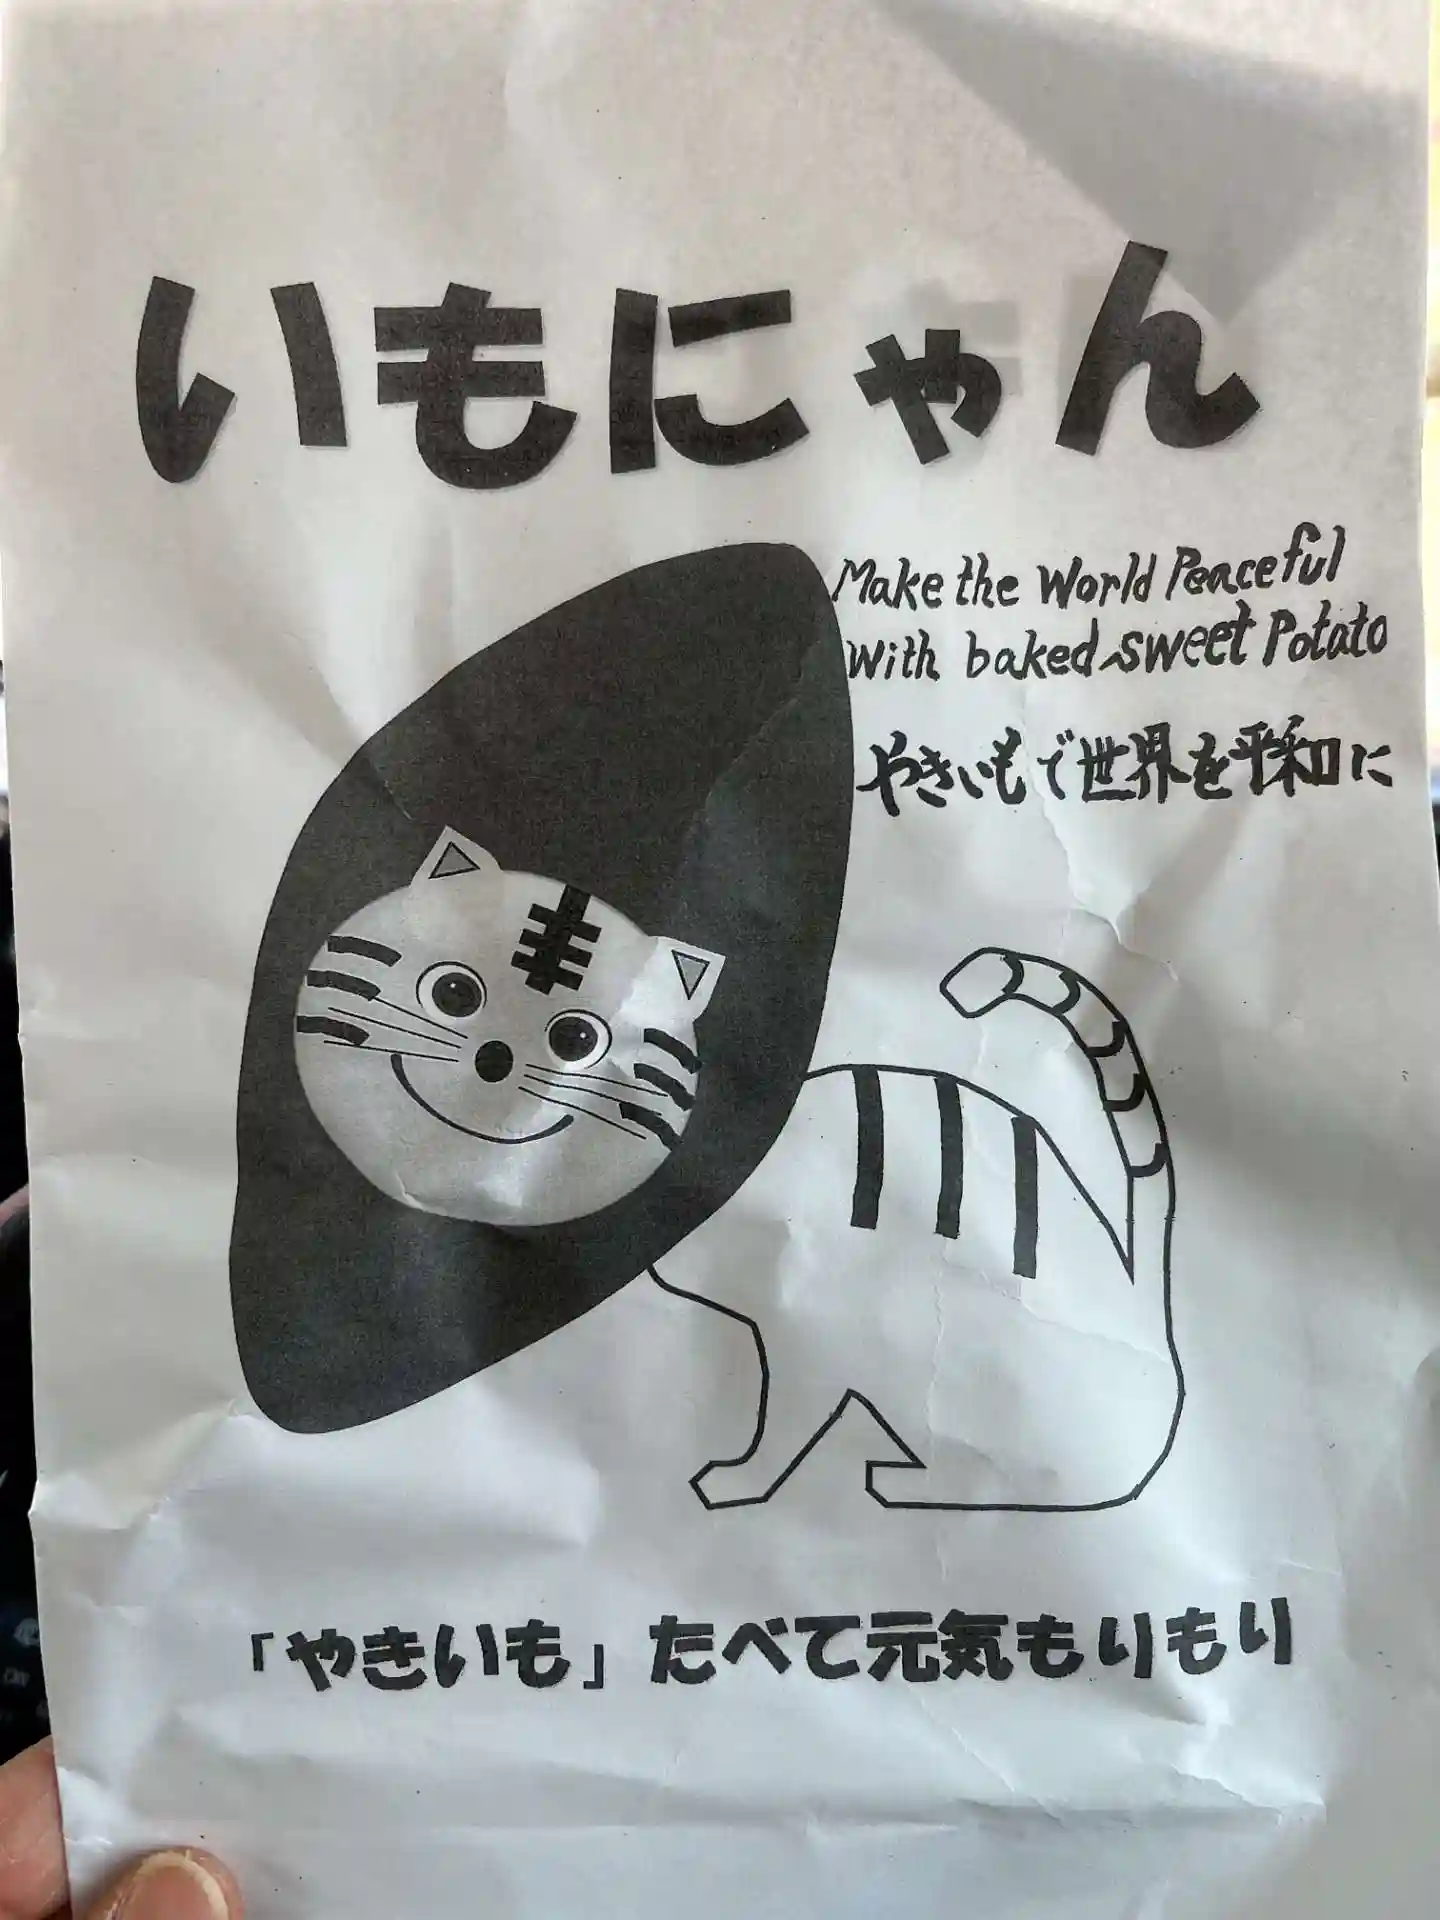 いもにゃん
Make the World Peaceful
With baked sweet Potato
やきいもで世界を平和に
「やきいも」たべて元気もりもり